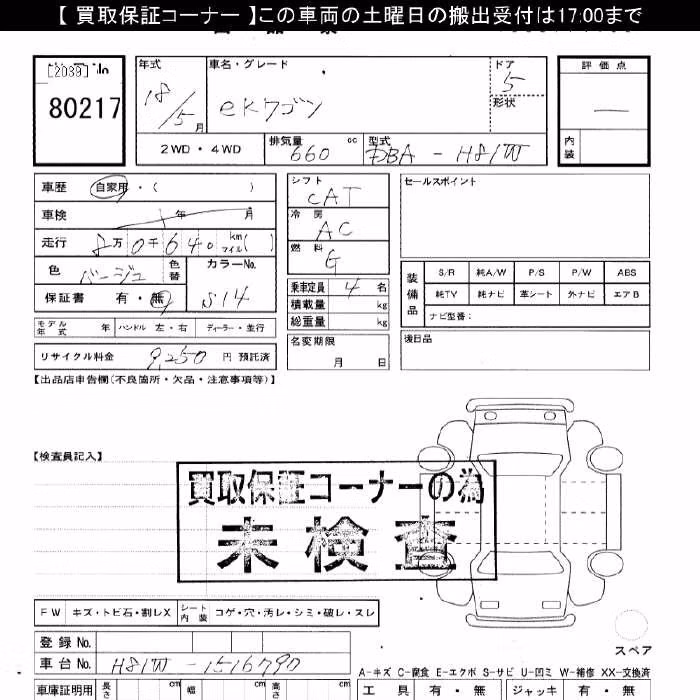 【 買取保証コーナー 】この車両の土曜日の搬出受付は17:00まで
[2039] No
80217
年式 車名・グレード ドア 評価点
18/5月 eKワゴン 5 形状
2WD・4WD 排気量 660 cc 型式 DBA-H81W 内装
車歴 自家用・( )
車検 年 月
走行 8万0千640 km マイル( )
色 ベージュ 色替 カラーNo.
保証書 有・無 S14
シフト CAT
冷房 AC
燃料 G
乗車定員 4 名
積載量 kg
総重量 kg
セールスポイント
装備品 S/R 純A/W P/S P/W ABS
純TV 純ナビ 革シート 外ナビ エアB
ナビ型番:
モデル年式 年 ハンドル 左・右 ディーラー・並行
名変期限 月 日
後日品
リサイクル料金 9,250 円 預託済
【出品店申告欄(不良箇所・欠品・注意事項等)】
【検査員記入】
買取保証コーナーの為
未検査
FW キズ・トビ石・割レX シート内装 コゲ・穴・汚レ・シミ・破レ・スレ
登録 No.
車台 No. H81W-1516790
スペア
A-キズ C-腐食 E-エクボ S-サビ U-凹ミ W-補修 XX-交換済
車庫証明用 長さ cm 幅 cm 高さ cm 工具 有・無 ジャッキ 有・無